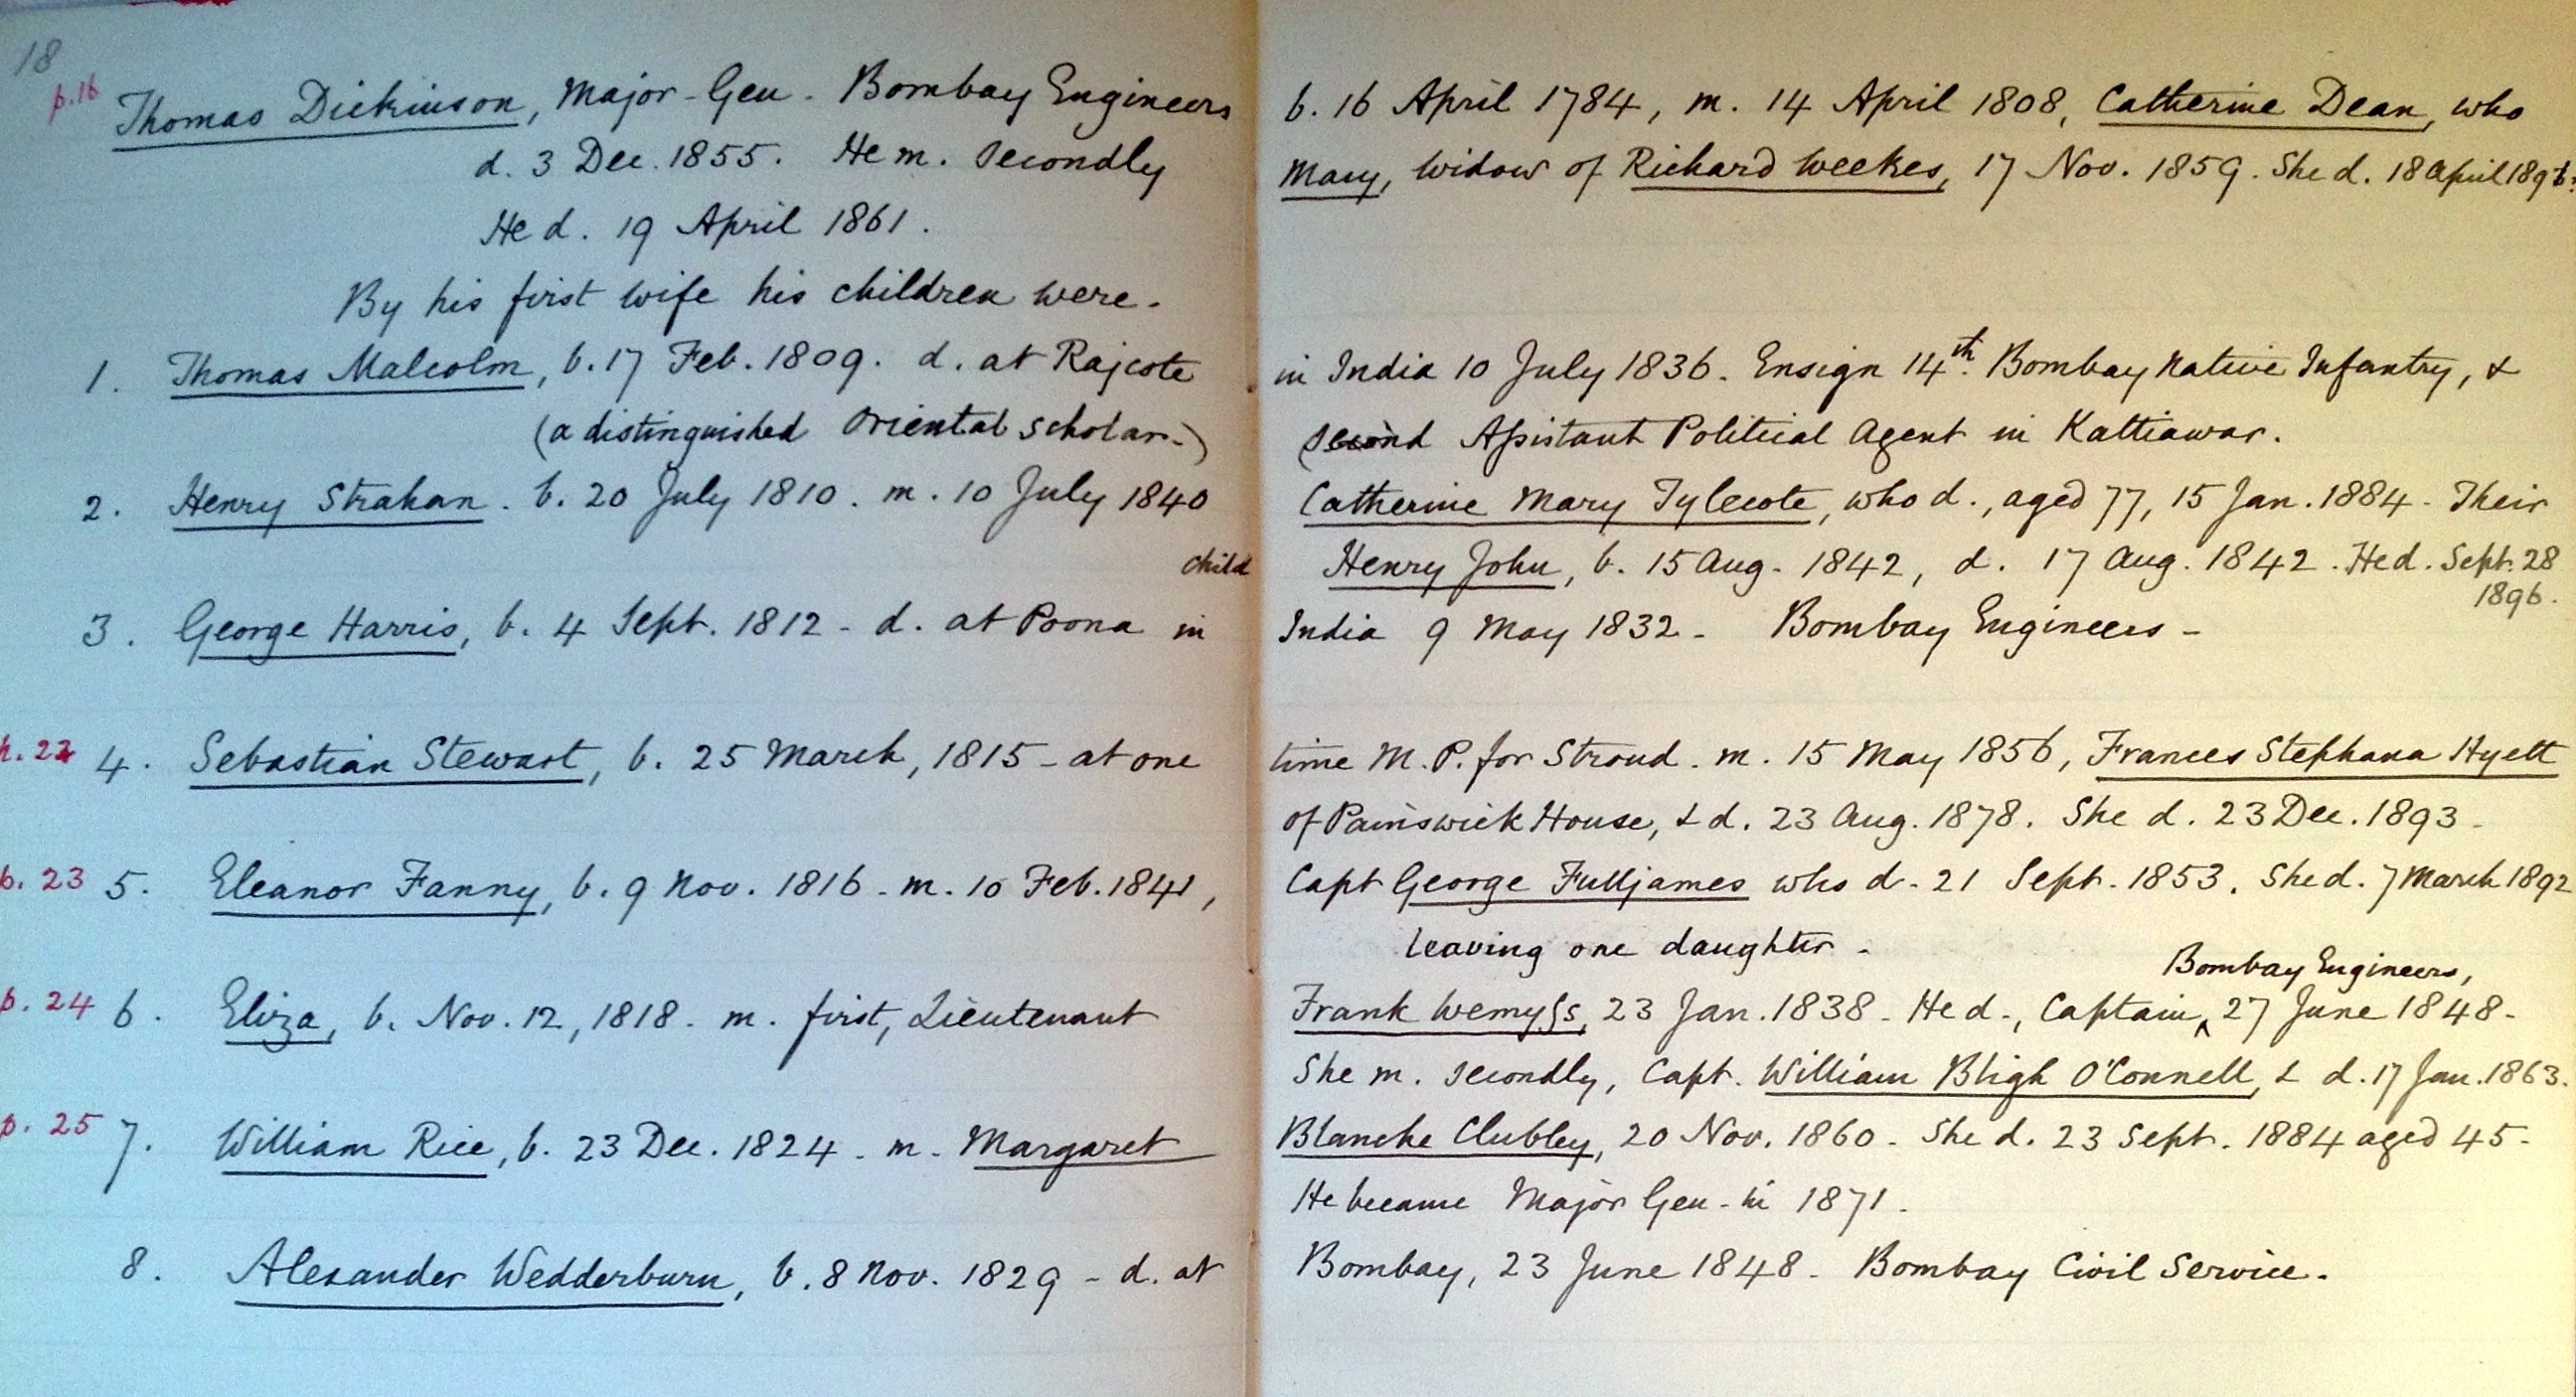 18
p.16 Thomas Dickinson, Major-Gen. Bombay Engineers b. 16 April 1784, m. 14 April 1808, Catherine Dean, who
d. 3 Dec. 1855. He m. secondly Mary, widow of Richard Weekes, 17 Nov. 1859. She d. 18 April 1896.
He d. 19 April 1861.
By his first wife his children were-
1. Thomas Malcolm, b. 17 Feb. 1809. d. at Rajcote in India 10 July 1836. Ensign 14th. Bombay Native Infantry, &
(a distinguished Oriental scholar-) second Assistant Political Agent in Kattiawar.
2. Henry Strahan. b. 20 July 1810. m. 10 July 1840 Catherine Mary Tylecote, who d., aged 77, 15 Jan. 1884- Their
child Henry John, b. 15 Aug. 1842, d. 17 Aug. 1842. He d. Sept. 28
1896.
3. George Harris, b. 4 Sept. 1812- d. at Poona in India 9 May 1832- Bombay Engineers-
4. Sebastian Stewart, b. 25 March, 1815- at one time M.P. for Stroud. m. 15 May 1856, Frances Stephana Hyett
of Painswick House, & d. 23 Aug. 1878. She d. 23 Dec. 1893-
p. 23 5. Eleanor Fanny, b. 9 Nov. 1816- m. 10 Feb. 1841, Capt George Fulljames who d- 21 Sept. 1853. She d. 7 March 1892
leaving one daughter-
Bombay Engineers,
p. 24 6. Eliza, b. Nov. 12, 1818- m. first, Lieutenant Frank Wemyss, 23 Jan. 1838- He d-, Captain ^ 27 June 1848-
She m. secondly, Capt. William Bligh O'Connell, & d. 17 Jan. 1863.
p. 25 7. William Rice, b. 23 Dec. 1824- m- Margaret Blanche Clubley, 20 Nov. 1860- She d. 23 Sept. 1884 aged 45-
He became Major Gen- in 1871.
8. Alexander Wedderburn, b. 8 Nov. 1829- d. at Bombay, 23 June 1848- Bombay Civil Service.